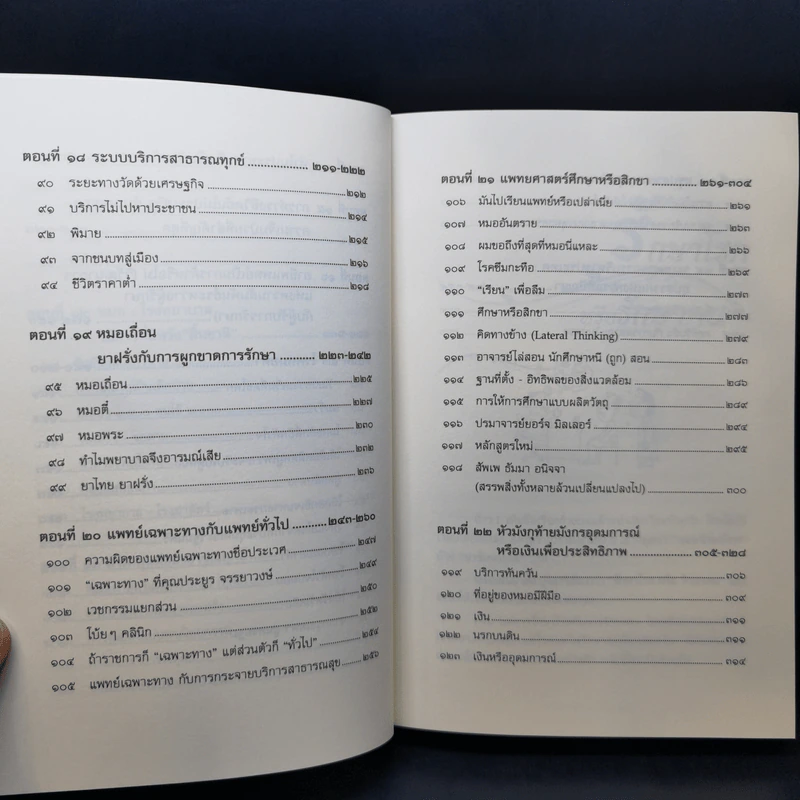 ตอนที่ ๑๘ ระบบบริการสาธารณทุกข์ .................. ๒๑๑-๒๒๒
๙๐ ระยะทางวัดด้วยเศรษฐกิจ ๒๑๒
๙๑ บริการไม่ไปหาประชาชน ๒๑๔
๙๒ พิมาย ๒๑๕
๙๓ จากชนบทสู่เมือง ๒๑๖
๙๔ ชีวิตราคาต่ำ ๒๑๘
ตอนที่ ๑๙ หมอเถื่อน
ยาฝรั่งกับการผูกขาดการรักษา .......... ๒๒๓-๒๔๒
๙๕ หมอเถื่อน ๒๒๕
๙๖ หมอตี๋ ๒๒๗
๙๗ หมอพระ ๒๓๐
๙๘ ทำไมพยาบาลจึงอารมณ์เสีย ๒๓๒
๙๙ ยาไทย ยาฝรั่ง ๒๓๖
ตอนที่ ๒๐ แพทย์เฉพาะทางกับแพทย์ทั่วไป ...........๒๔๓-๒๖๐
๑๐๐ ความผิดของแพทย์เฉพาะทางชื่อประเวศ ๒๔๗
๑๐๑ “เฉพาะทาง” ที่คุณประยูร จรรยาวงษ์ ๒๔๙
๑๐๒ เวชกรรมแยกส่วน ๒๕๐
๑๐๓ โบ้ย ๆ คลินิก ๒๕๒
๑๐๔ ถ้าราชการก็ “เฉพาะทาง” แต่ส่วนตัวก็ “ทั่วไป” ๒๕๔
๑๐๕ แพทย์เฉพาะทาง กับการกระจายบริการสาธารณสุข ๒๕๖
ตอนที่ ๒๑ แพทยศาสตร์ศึกษาหรือสิกขา .............. ๒๖๑-๓๐๔
๑๐๖ มันไปเรียนแพทย์หรือเปล่าเนี่ย ๒๖๑
๑๐๗ หมออันตราย ๒๖๓
๑๐๘ ผมขอถึงที่สุดที่หมอนี่แหละ ๒๖๖
๑๐๙ โรคซึมกะทือ ๒๖๙
๑๑๐ “เรียน” เพื่อลืม ๒๗๓
๑๑๑ ศึกษาหรือสิกขา ๒๗๗
๑๑๒ คิดทางข้าง (Lateral Thinking) ๒๗๙
๑๑๓ อาจารย์ไล่สอน นักศึกษาหนี (ถูก) สอน ๒๘๓
๑๑๔ ฐานที่ตั้ง - อิทธิพลของสิ่งแวดล้อม ๒๘๖
๑๑๕ การให้การศึกษาแบบผลิตวัตถุ ๒๘๙
๑๑๖ ปรมาจารย์ยอร์จ มิลเลอร์ ๒๙๔
๑๑๗ หลักสูตรใหม่ ๒๙๕
๑๑๘ สัพเพ ธัมมา อนิจจา
(สรรพสิ่งทั้งหลายล้วนเปลี่ยนแปลงไป) ๓๐๐
ตอนที่ ๒๒ หัวมังกุท้ายมังกรอุดมการณ์
หรือเงินเพื่อประสิทธิภาพ .................. ๓๐๕-๓๒๘
๑๑๙ บริการทันควัน ๓๐๖
๑๒๐ ที่อยู่ของหมอมีฝีมือ ๓๐๙
๑๒๑ เงิน ๓๑๑
๑๒๒ นรกบนดิน ๓๑๑
๑๒๓ เงินหรืออุดมการณ์ ๓๑๔